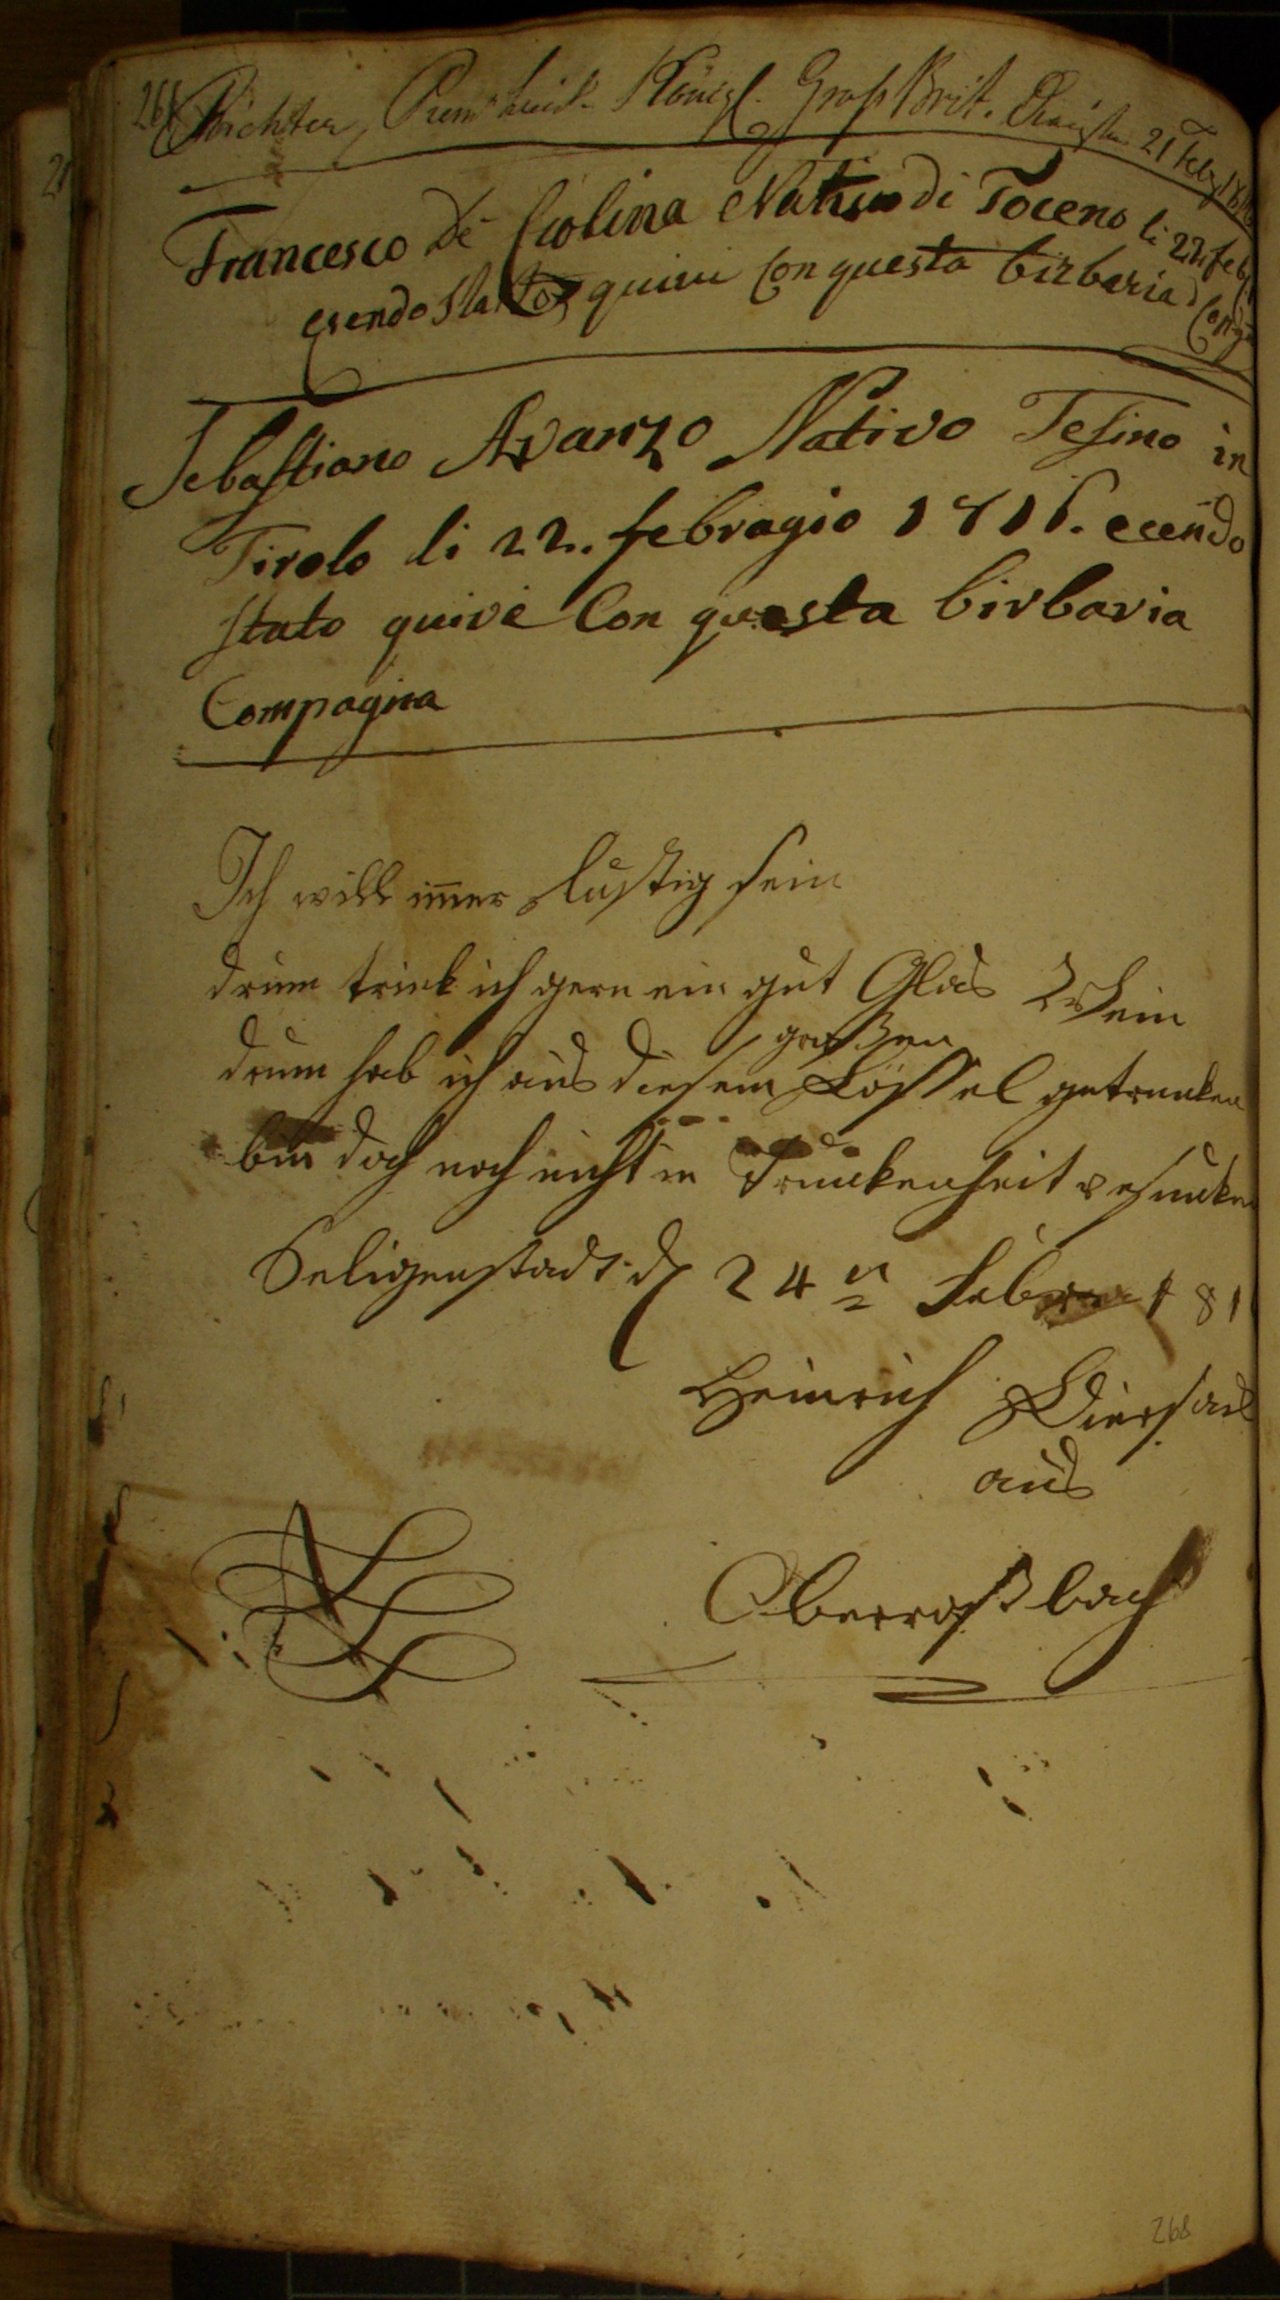 268
Richter, Prem Lieut. Königl. Groß Brit. 21 Feby 1816
Francesco De Ciolina Nativo di Toceno li 22 feb
esendo statto quivi Con questa birbaria di Comp
Sebastiano Avanzo Nativo Tesino in
Tirolo li 22. febragio 1816. ecendo
stato quive Con questa birbaria
Compagina
Ich will im̄er Lustig sein
drum trink ich gern ein gut Glas Wein
großen
drum hab ich aus diesem Löffel getrunken
bin doch noch nicht in Trunkenheit versunken
Seligenstadt d 24n Febr 181
Heinrich
aus
Oberroßbach
268